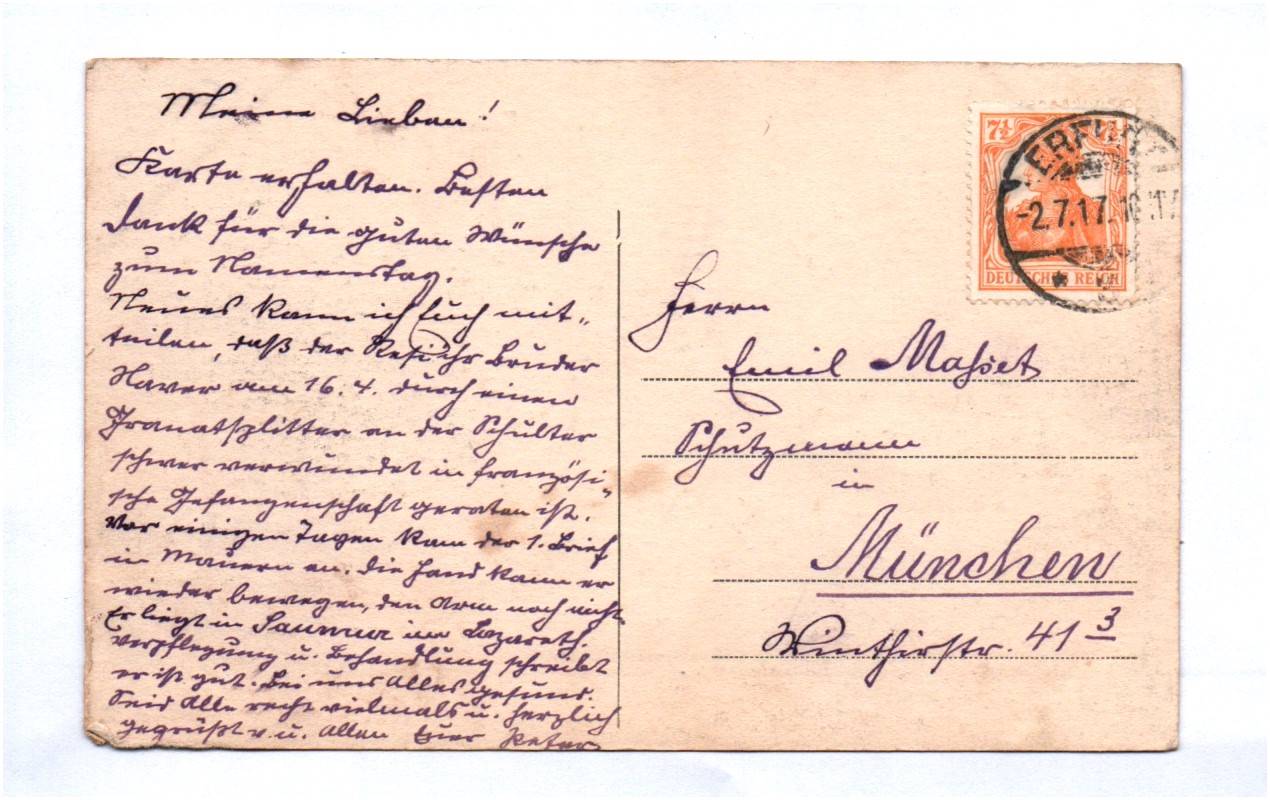 Meine Lieben!
Karte erhalten. Besten
Dank für die guten Wünsche
zum Namenstag.
Neues kann ich Euch mit-
teilen, daß der Bruder
Xaver am 16.4. durch einen
Granatsplitter an der Schulter
schwer verwundet in französi-
sche Gefangenschaft geraten ist.
Vor einigen Tagen kam der 1. Brief
in Mauern an. Die Hand kann er
wieder bewegen, den Arm noch nicht.
Er liegt in Saumur im Lazareth.
Verpflegung u. Behandlung schreibt
er ist gut. Bei uns Alles gesund.
Seid Alle recht vielmals u. herzlich
gegrüßt v. u. Allen Euer Peter
7½
DEUTSCHES REICH
ERFURT
-2.7.17.
Herrn
Emil Masset
Schutzmann
in
München
Winthirstr. 41 3